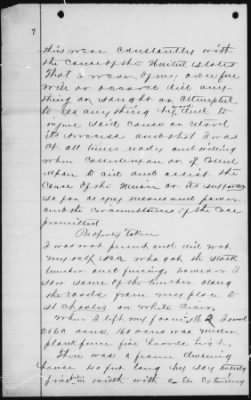 7
this war constantly with
the cause of the United States
That I never of my own free
will or accord did any
thing or sought or attempted
to do any thing by word, deed to
injure said cause or retard
its success and that I was
at all times ready and willing
when called upon or if called
upon to aid and assist the
Cause of the Union or its supporters
so far as my means and power
and the circumstances of the case
permitted
Property taken
I was not present and did not
my self see who got the stock
lumber and fencing, however I
saw some of the lumber along
the roads from my place to
St Charles on White River.
When I left my farm I owned
2660 acres. 160 acres was under
plank fence five boards high.
There was a frame dwelling
house 40 feet long by say twenty
feet in width with a